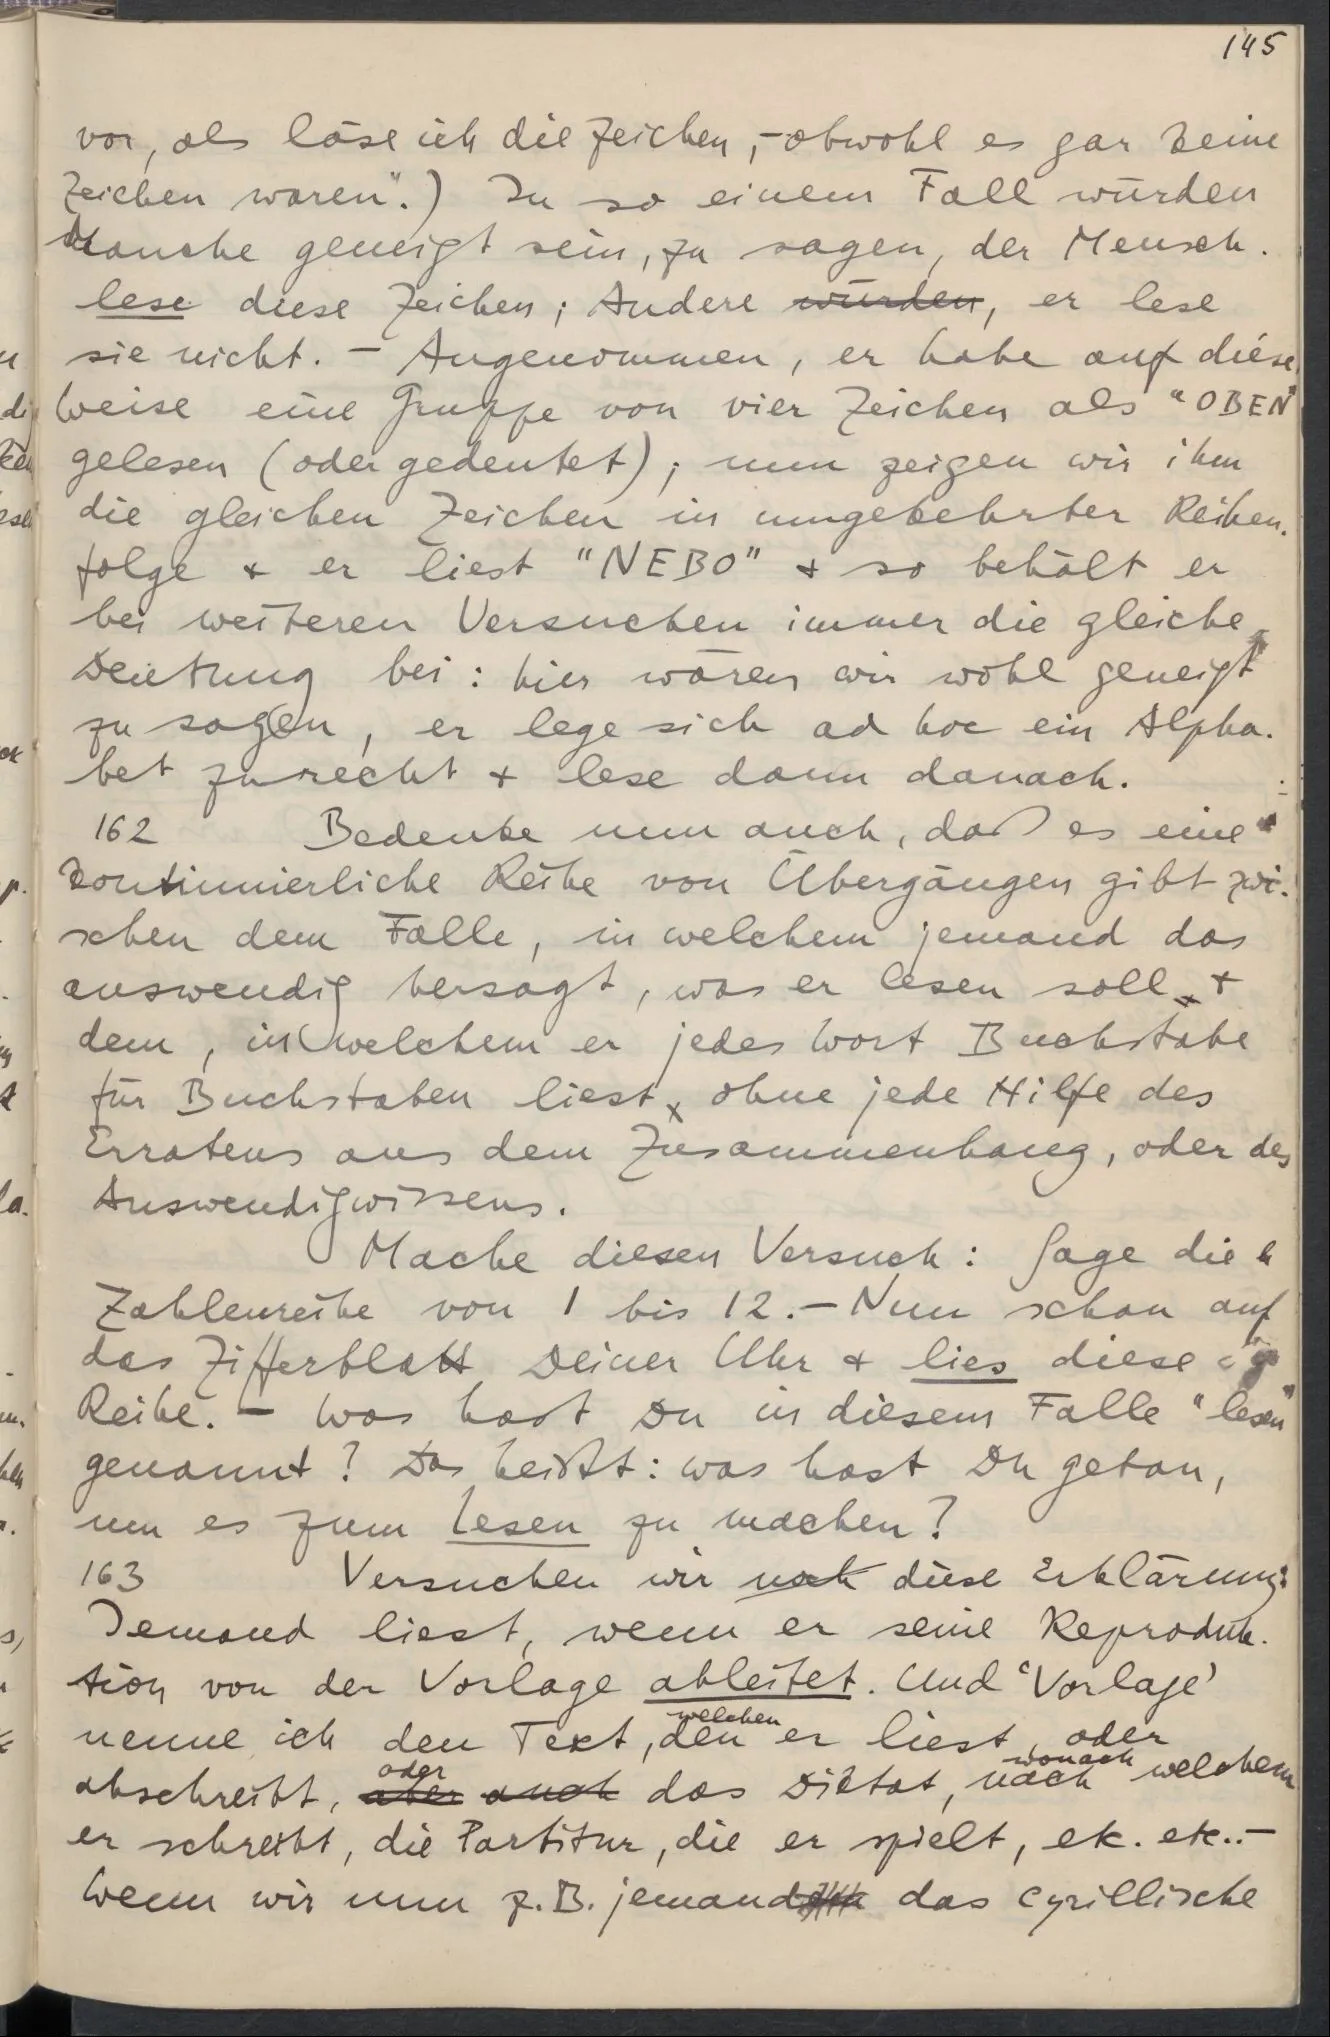 145
vor, als läse ich die Zeichen, – obwohl es gar keine
Zeichen waren".) In so einem Fall würden
Manche geneigt sein, zu sagen, der Mensch
lese diese Zeichen; Andere würden, er lese
sie nicht. – Angenommen, er habe auf diese
Weise eine Gruppe von vier Zeichen als "OBEN"
gelesen (oder gedeutet); nun zeigen wir ihm
die gleichen Zeichen in umgekehrter Reihen-
folge + er liest "NEBO" + so behält er
bei weiteren Versuchen immer die gleiche
Deutung bei: hier wären wir wohl geneigt
zu sagen, er lege sich ad hoc ein Alpha-
bet zurecht + lese dann danach.
162 Bedenke nun auch, daß es eine
kontinuierliche Reihe von Übergängen gibt zwi-
schen dem Falle, in welchem jemand das
auswendig hersagt, was er lesen soll, +
dem, in welchem er jedes Wort Buchstabe
für Buchstaben liest, ohne jede Hilfe des
Erratens aus dem Zusammenhang, oder des
Auswendigwissens.
Mache diesen Versuch: Sage die
Zahlenreihe von 1 bis 12. – Nun schau auf
das Zifferblatt Deiner Uhr + lies diese
Reihe. – Was hast Du in diesem Falle "lesen"
genannt? Das heißt: was hast Du getan,
um es zum Lesen zu machen?
163 Versuchen wir noch diese Erklärung:
Jemand liest, wenn er seine Reproduk-
tion von der Vorlage ableitet. Und 'Vorlage'
welchen
nenne ich den Text, den er liest, oder
oder wonach
abschreibt, aber auch das Diktat, nach welchem
er schreibt, die Partitur, die er spielt, etc. etc.. –
Wenn wir nun z.B. jemand das cyrillische